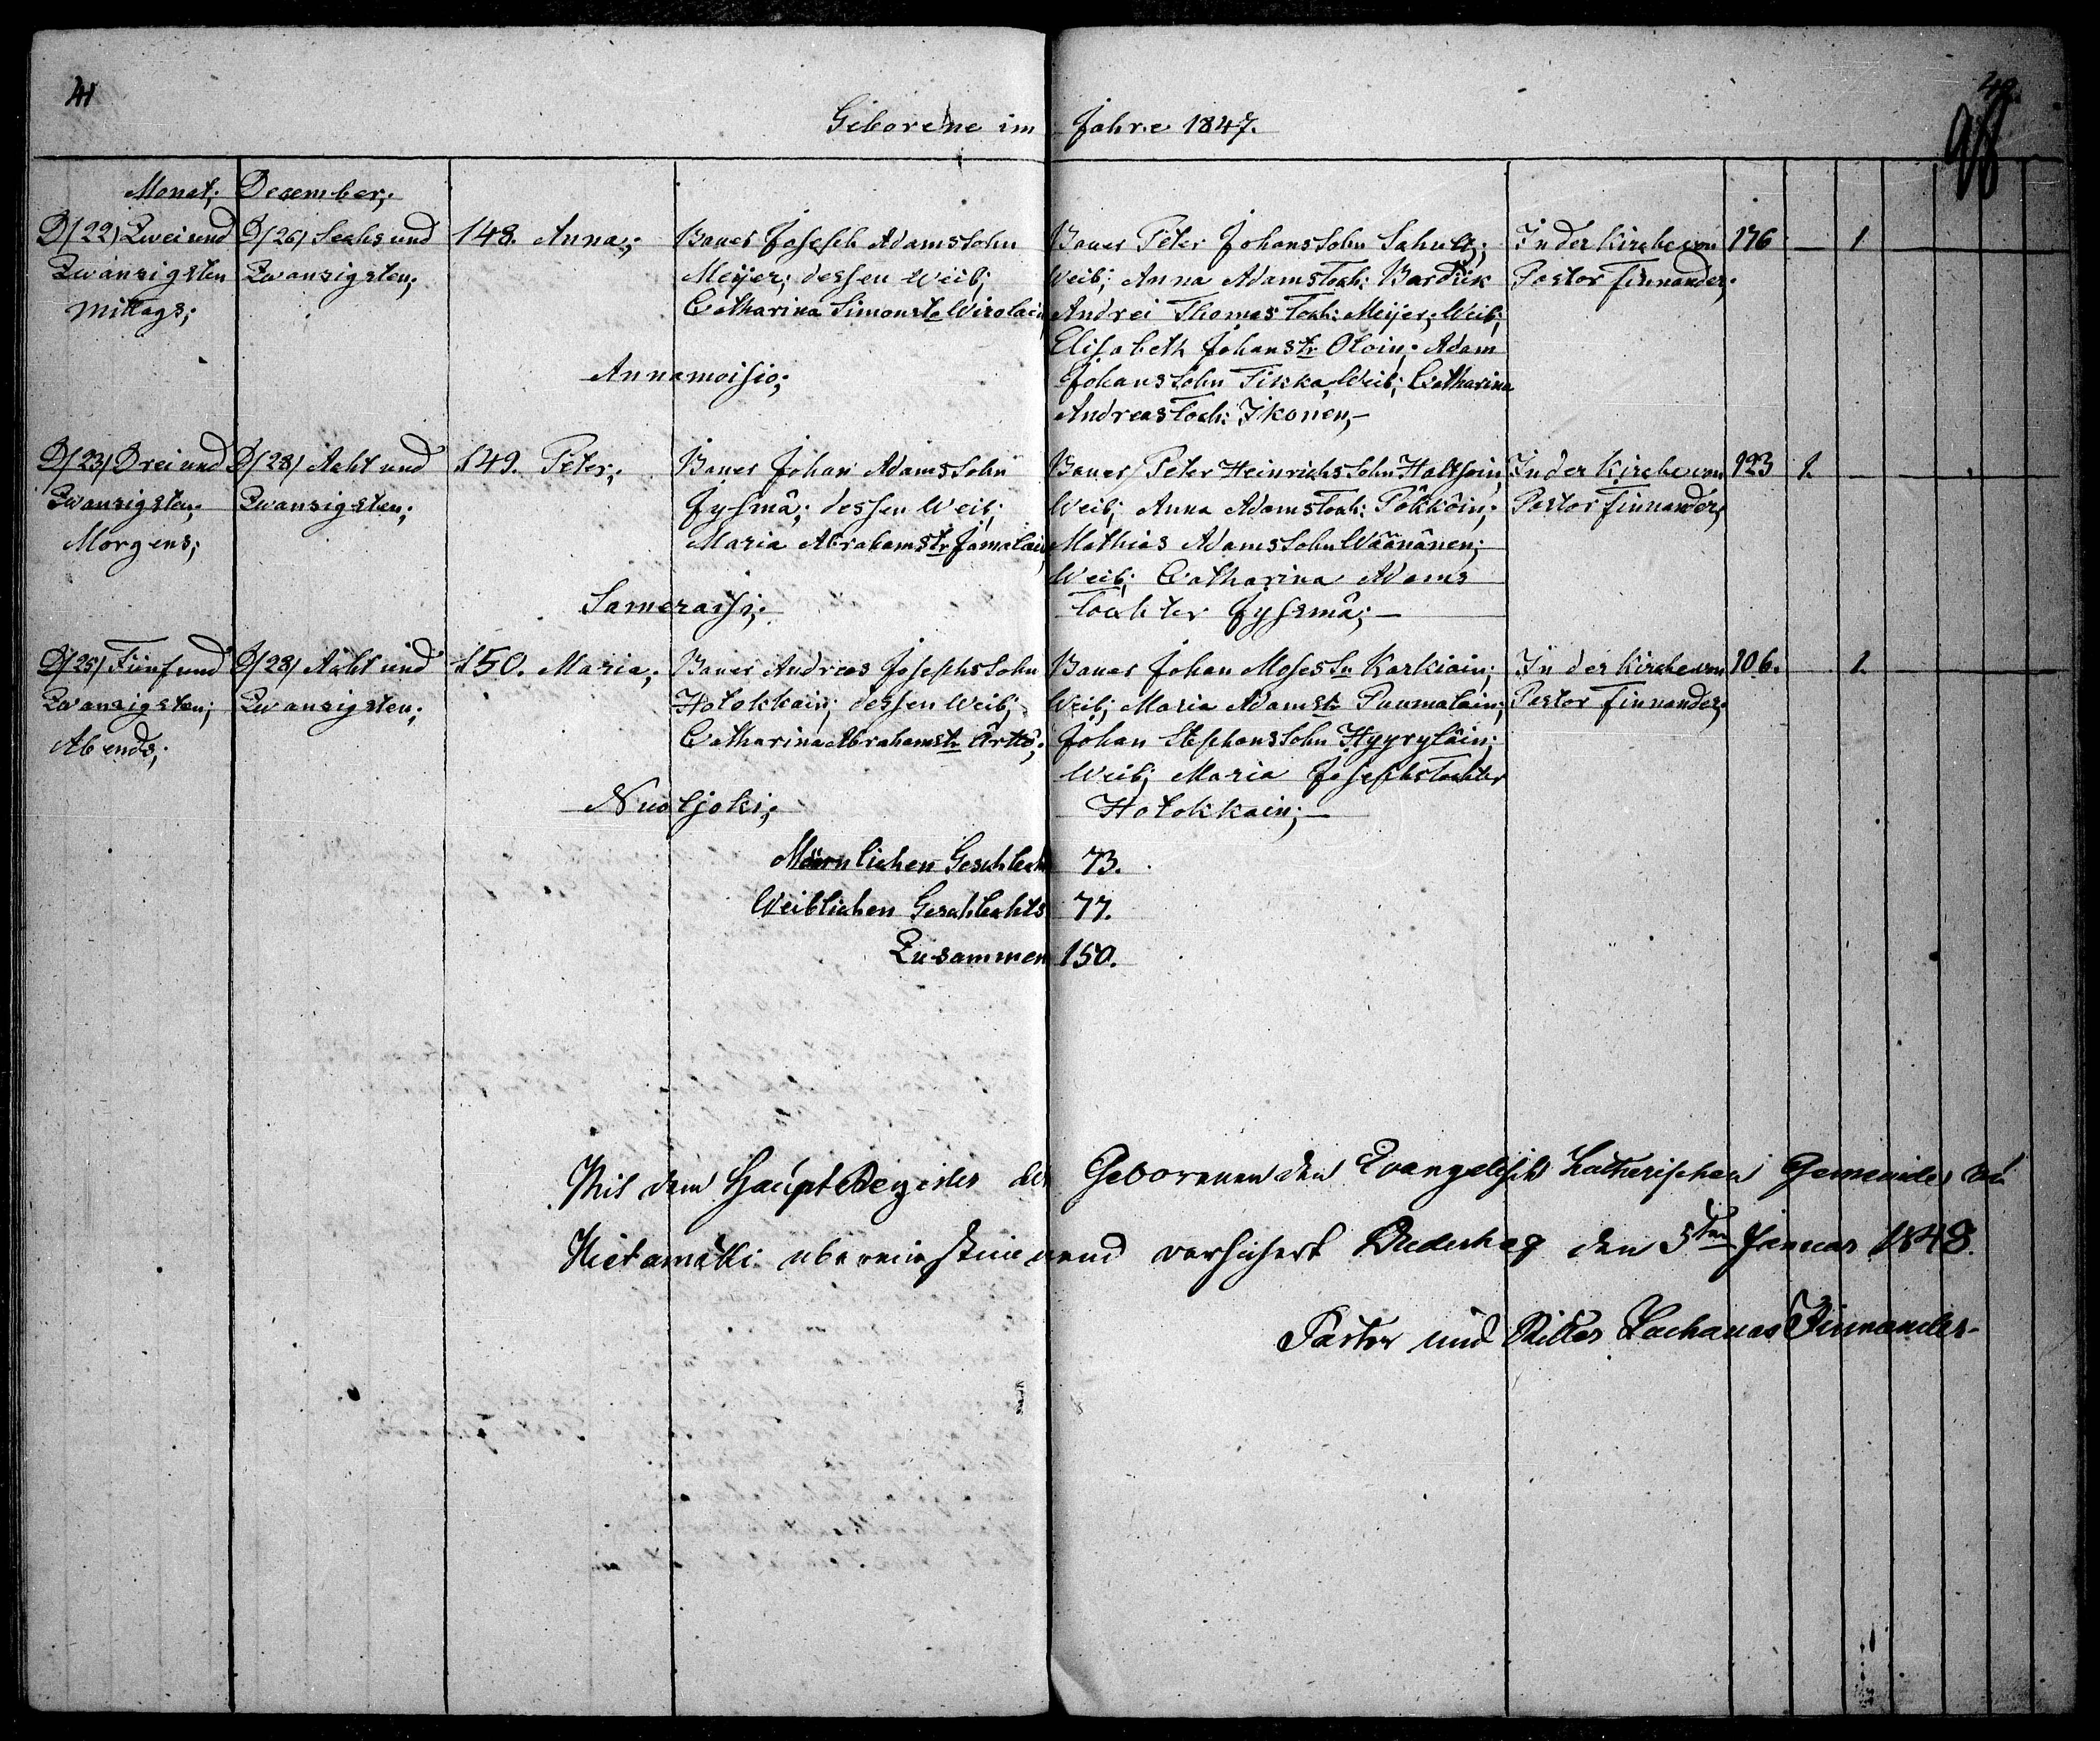 41
42.
Geborene im Jahre 1847.
Monat; December;
D/22/ Zwei und D/26/ Sechs und 148. Anna; Bauer Joseph Adamssohn Bauer Peter Johanssohn Schultz; In der Kirche von 176 — 1
Zwanzigsten Zwanzigsten; Meijer; dessen Weib; Weib; Anna Adamstoch: Bardük Pastor Finnander;
Mittags; Catharina Simonstr Wirolain Andrei Thomas Toch: Meijer; Weib;
Elisabeth Johanstr Oloin; Adam
Annamoisio; Johanssohn Tikka, Weib; Catharina
Andreastoch: Ikonen,—
D/23/ Drei und D/28/ Acht und 149. Peter; Bauer Johan Adamssohn Bauer Peter Heinrichssohn Haltsoin; In der Kirche von 123 1.
Zwanzigsten; Zwanzigsten; Jysmä; dessen Weib; Weib; Anna Adamstoch: Pökköin; Pastor Finnander;
Morgens; Maria Abrahamstr Jamalain; Mathias Adamssohn Wäänänen;
Weib; Catharina Adams
Sameraisi; Tochter Jysmä;—
D/25/ Fünf und D/28/ Acht und 150. Maria; Bauer Andreas Josephssohn Bauer Johan Mosessn Karkiain; In der Kirche von 106. 1.
Zwanzigsten; Zwanzigsten; Hotokkain; dessen Weib; Weib; Maria Adamstr Paumalain; Pastor Finnander;
Abends; Catharina Abrahamstr Ärtto; Johan Stephanssohn Hyyryläin;
Weib; Maria Josephstochter
Nuoljoki; Hotokkain;—
Männlichen Geschlechts 73.
Weiblichen Geschlechts 77.
Zusammen 150.
Mit dem Haupt Register der Geborenen der Evangelisch Lutherischen Gemeinde zu
Hietamäki übereinstimmend versichert Duderhof den 5ten Januar 1848.
Pastor und Ritter Zachaeus Finnander